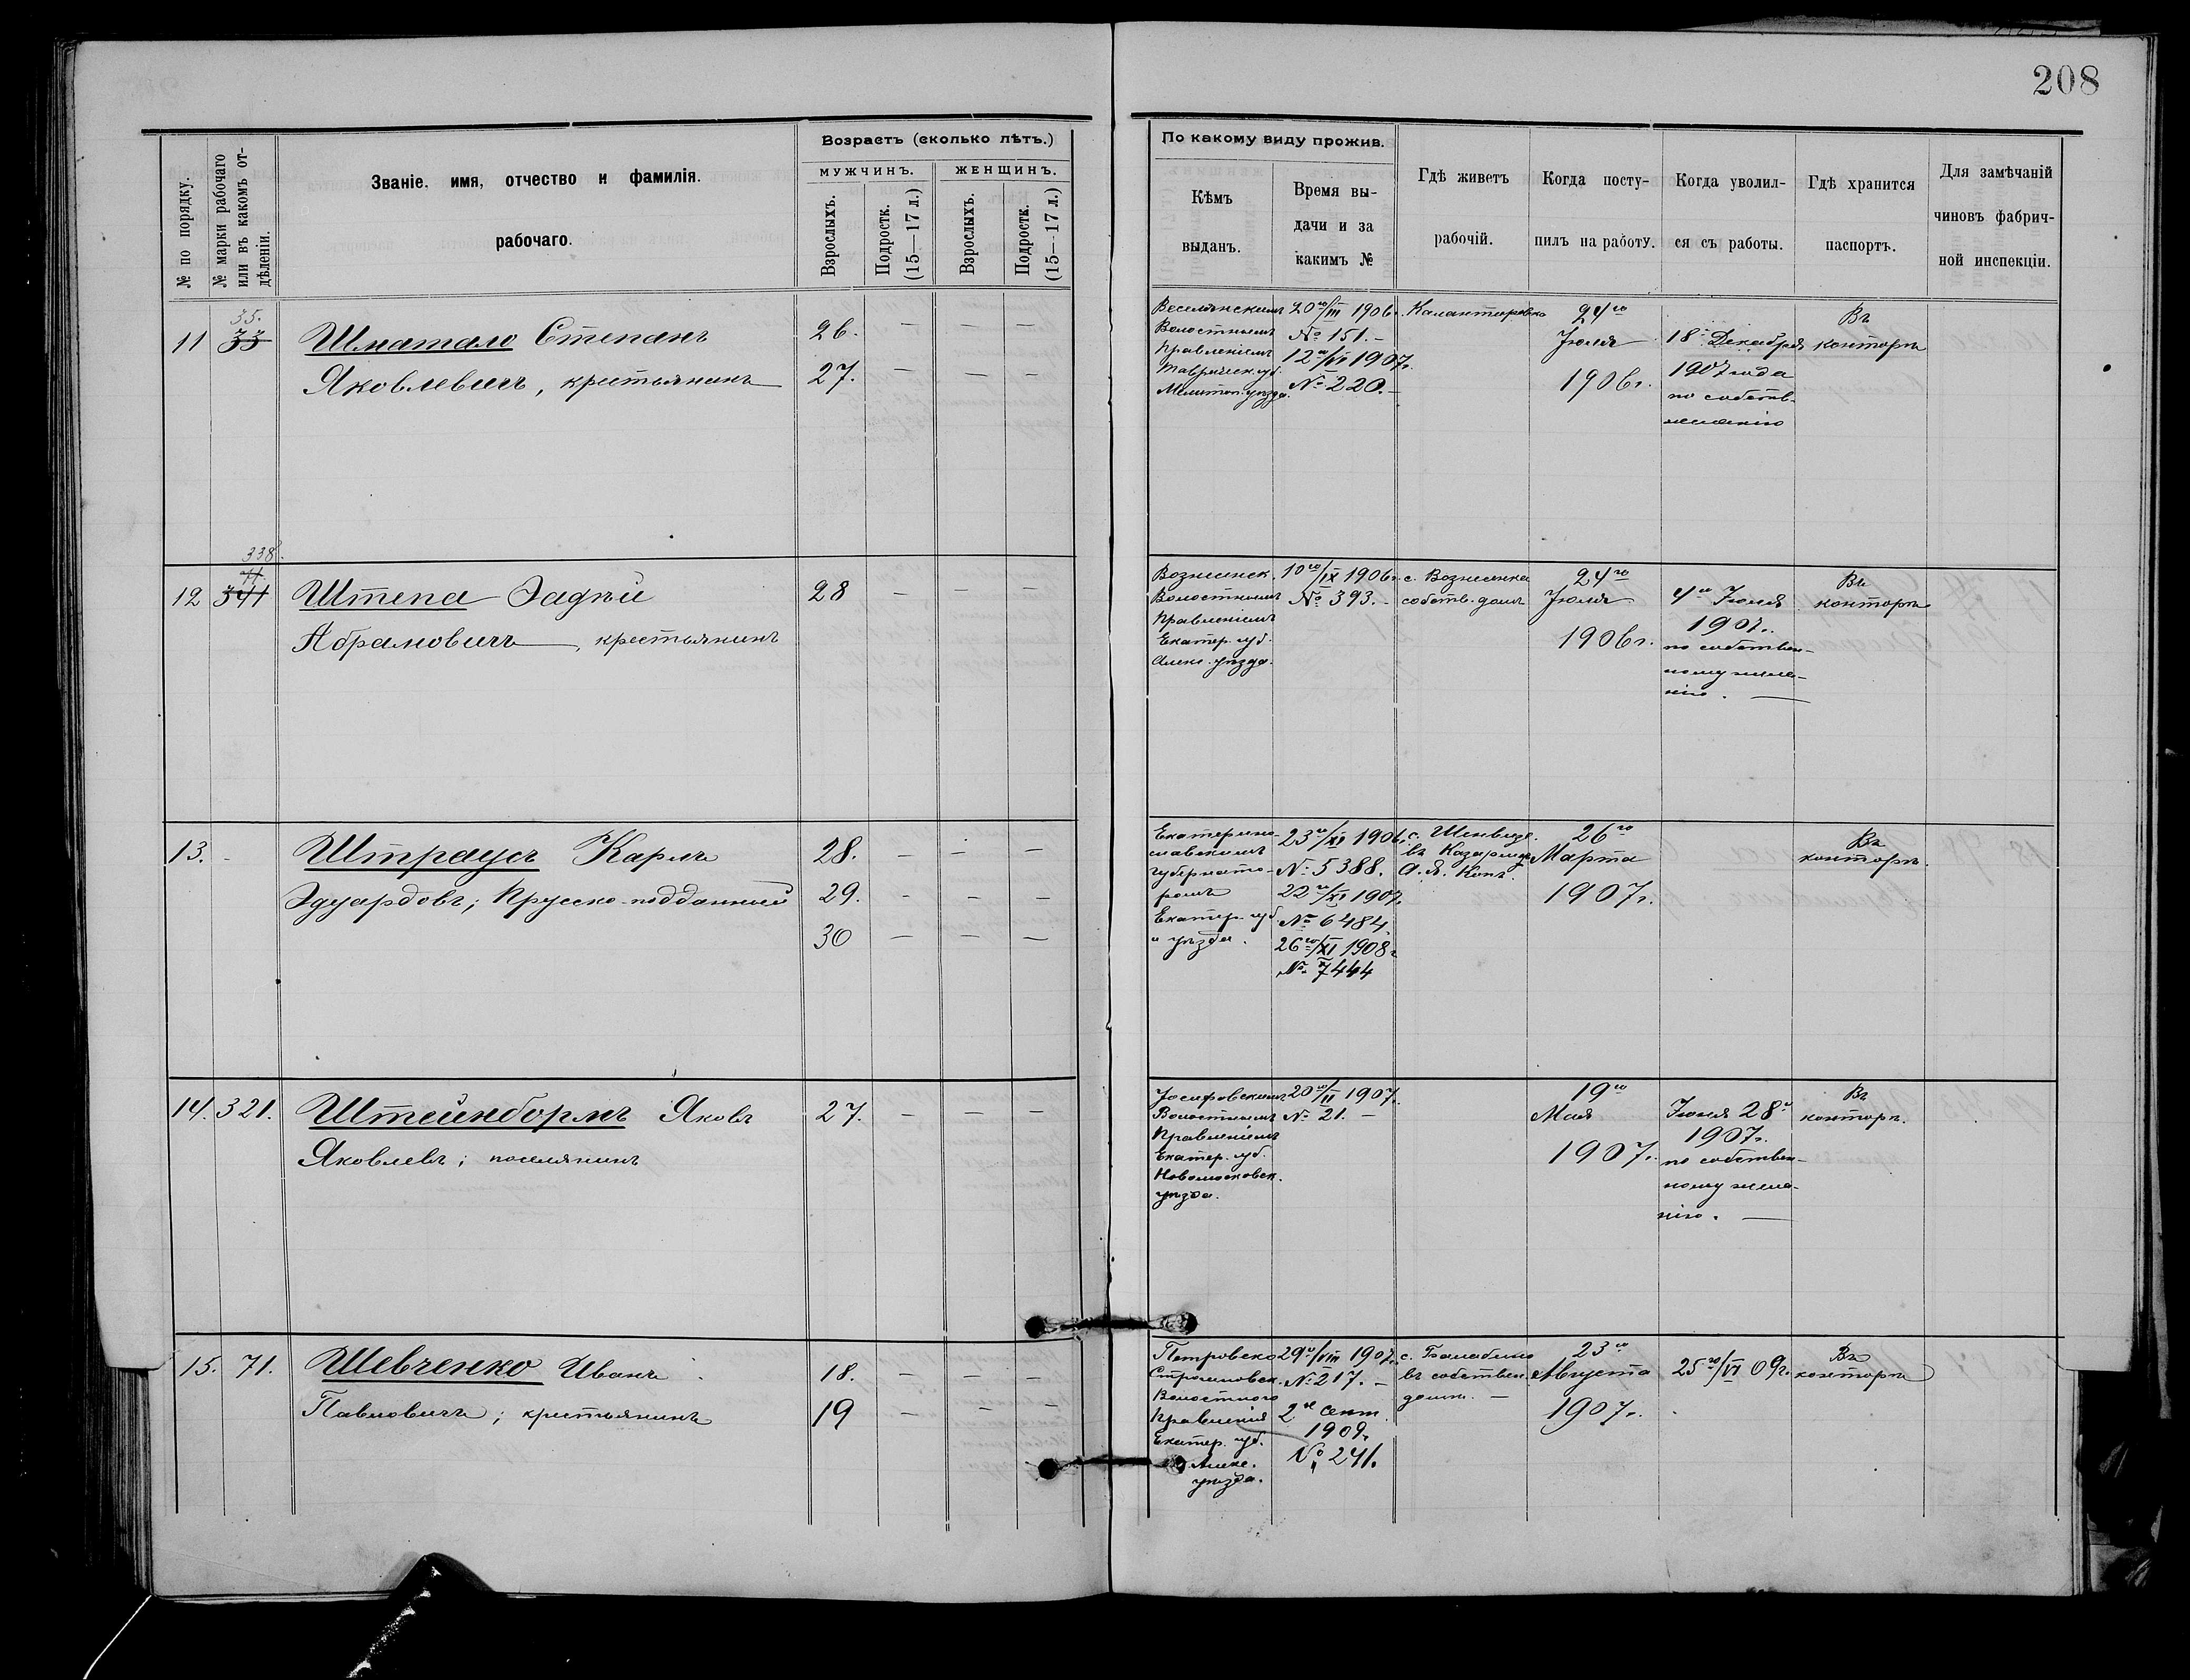 208
№ по порядку.
№ марки рабочаго
или въ какомъ от-
дѣленіи.
Званіе, имя, отчество и фамилія.
рабочаго.
Возрастъ (сколько лѣтъ.)
МУЖЧИНЪ.
ЖЕНЩИНЪ.
Взрослыхъ.
Подростк.
(15—17 л.)
Взрослыхъ.
Подростк.
(15—17 л.)
По какому виду прожив.
Кѣмъ
выданъ.
Время вы-
дачи и за
какимъ №
Гдѣ живетъ
рабочій.
Когда посту-
пилъ на работу.
Когда уволил-
ся съ работы.
Гдѣ хранится
паспортъ.
Для замѣчаній
чиновъ фабрич-
ной инспекціи.
35.
11 33
Шматало Степанъ
Яковлевичъ, крестьянинъ
26. — — —
27. — — —
Веселянскимъ
Волостнымъ
Правленіемъ
Таврическ. губ.
Мелитоп. уѣзда.
20го/III 1906г.
№ 151. —
12го/IV 1907г.
№ 220. —
Калантыровка
24го
Іюля
1906г.
18го Декабря
1907 года
по собств.
желанію
Въ
конторѣ
338.
71.
12 341
Штепа Фадѣй
Абрамовичъ, крестьянинъ
28 — — —
Вознесенск.
Волостнымъ
Правленіемъ
Екатер. губ.
Алекс. уѣзда.
10го/IX 1906г.
№ 393. —
с. Вознесенка
собств. домъ
24го
Іюля
1906г.
4го Іюля
1907г.
по собствен-
ному жела-
нію. —
Въ
конторѣ
13. -
Штраусъ Карлъ
Эдуардовъ; Прусско-подданный
28. — — —
29. — — —
30 — — —
Екатерино-
славскимъ
губернато-
ромъ
Екатер. губ.
и уѣзда.
23го/XI 1906г.
№ 5388.
22го/XI 1907г.
№ 6484.
26го/XI 1908г.
№ 7444
с. Шенвизе.
въ Казармѣ
А. Я. Копъ.
26го
Марта
1907г.
Въ
конторѣ.
14. 321.
Штейнбормъ Яковъ
Яковлевъ; поселянинъ
27. — — —
Іосифовскимъ
Волостнымъ
Правленіемъ
Екатер. губ.
Новомосковск.
уѣзда.
20го/II 1907г.
№ 21. —
19го
Мая
1907г.
Іюля 28го
1907г.
по собствен-
ному жела-
нію. —
Въ
конторѣ.
15. 71.
Шевченко Иванъ
Павловичъ; крестьянинъ
18. — — —
19 — — —
Петровско
Волостного
Правленія
Екатер. губ.
Алекс.
уѣзда.
29го/VIII 1907г.
№ 217. —
2го сент.
1908г.
№ 241.
с. Балабино
въ собствен.
домѣ. —
23го
Августа
1907г.
25го/VI 09г.
Въ
конторѣ